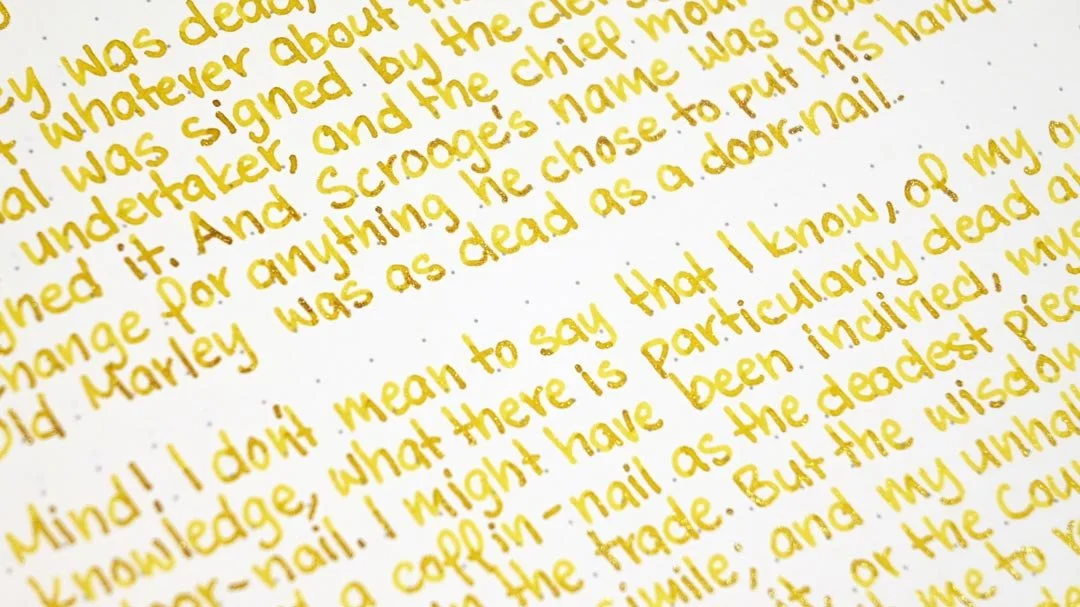 ey was dead,
whatever about th
al was signed by the cler
undertaker, and the chief mour
gned it. And Scrooge's name was good
hange for anything he chose to put his hand
Old Marley was as dead as a door-nail.
Mind! I don't mean to say that I know, of my o
knowledge, what there is particularly dead a
or-nail. I might have been inclined, mys
a coffin-nail as the deadest piec
n the trade. But the wisdom
simile, and my unhal
it, or the Cou
me to